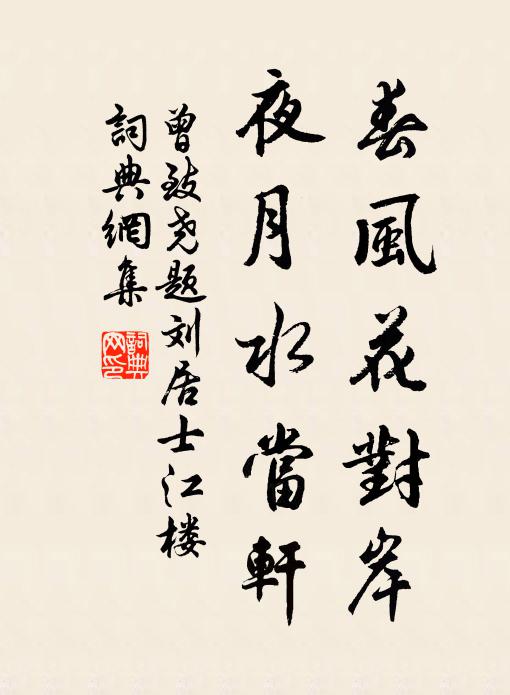 春風花對岸
夜月水當軒
曾致尧题刘居士江楼
詞典網集
詞典
网印